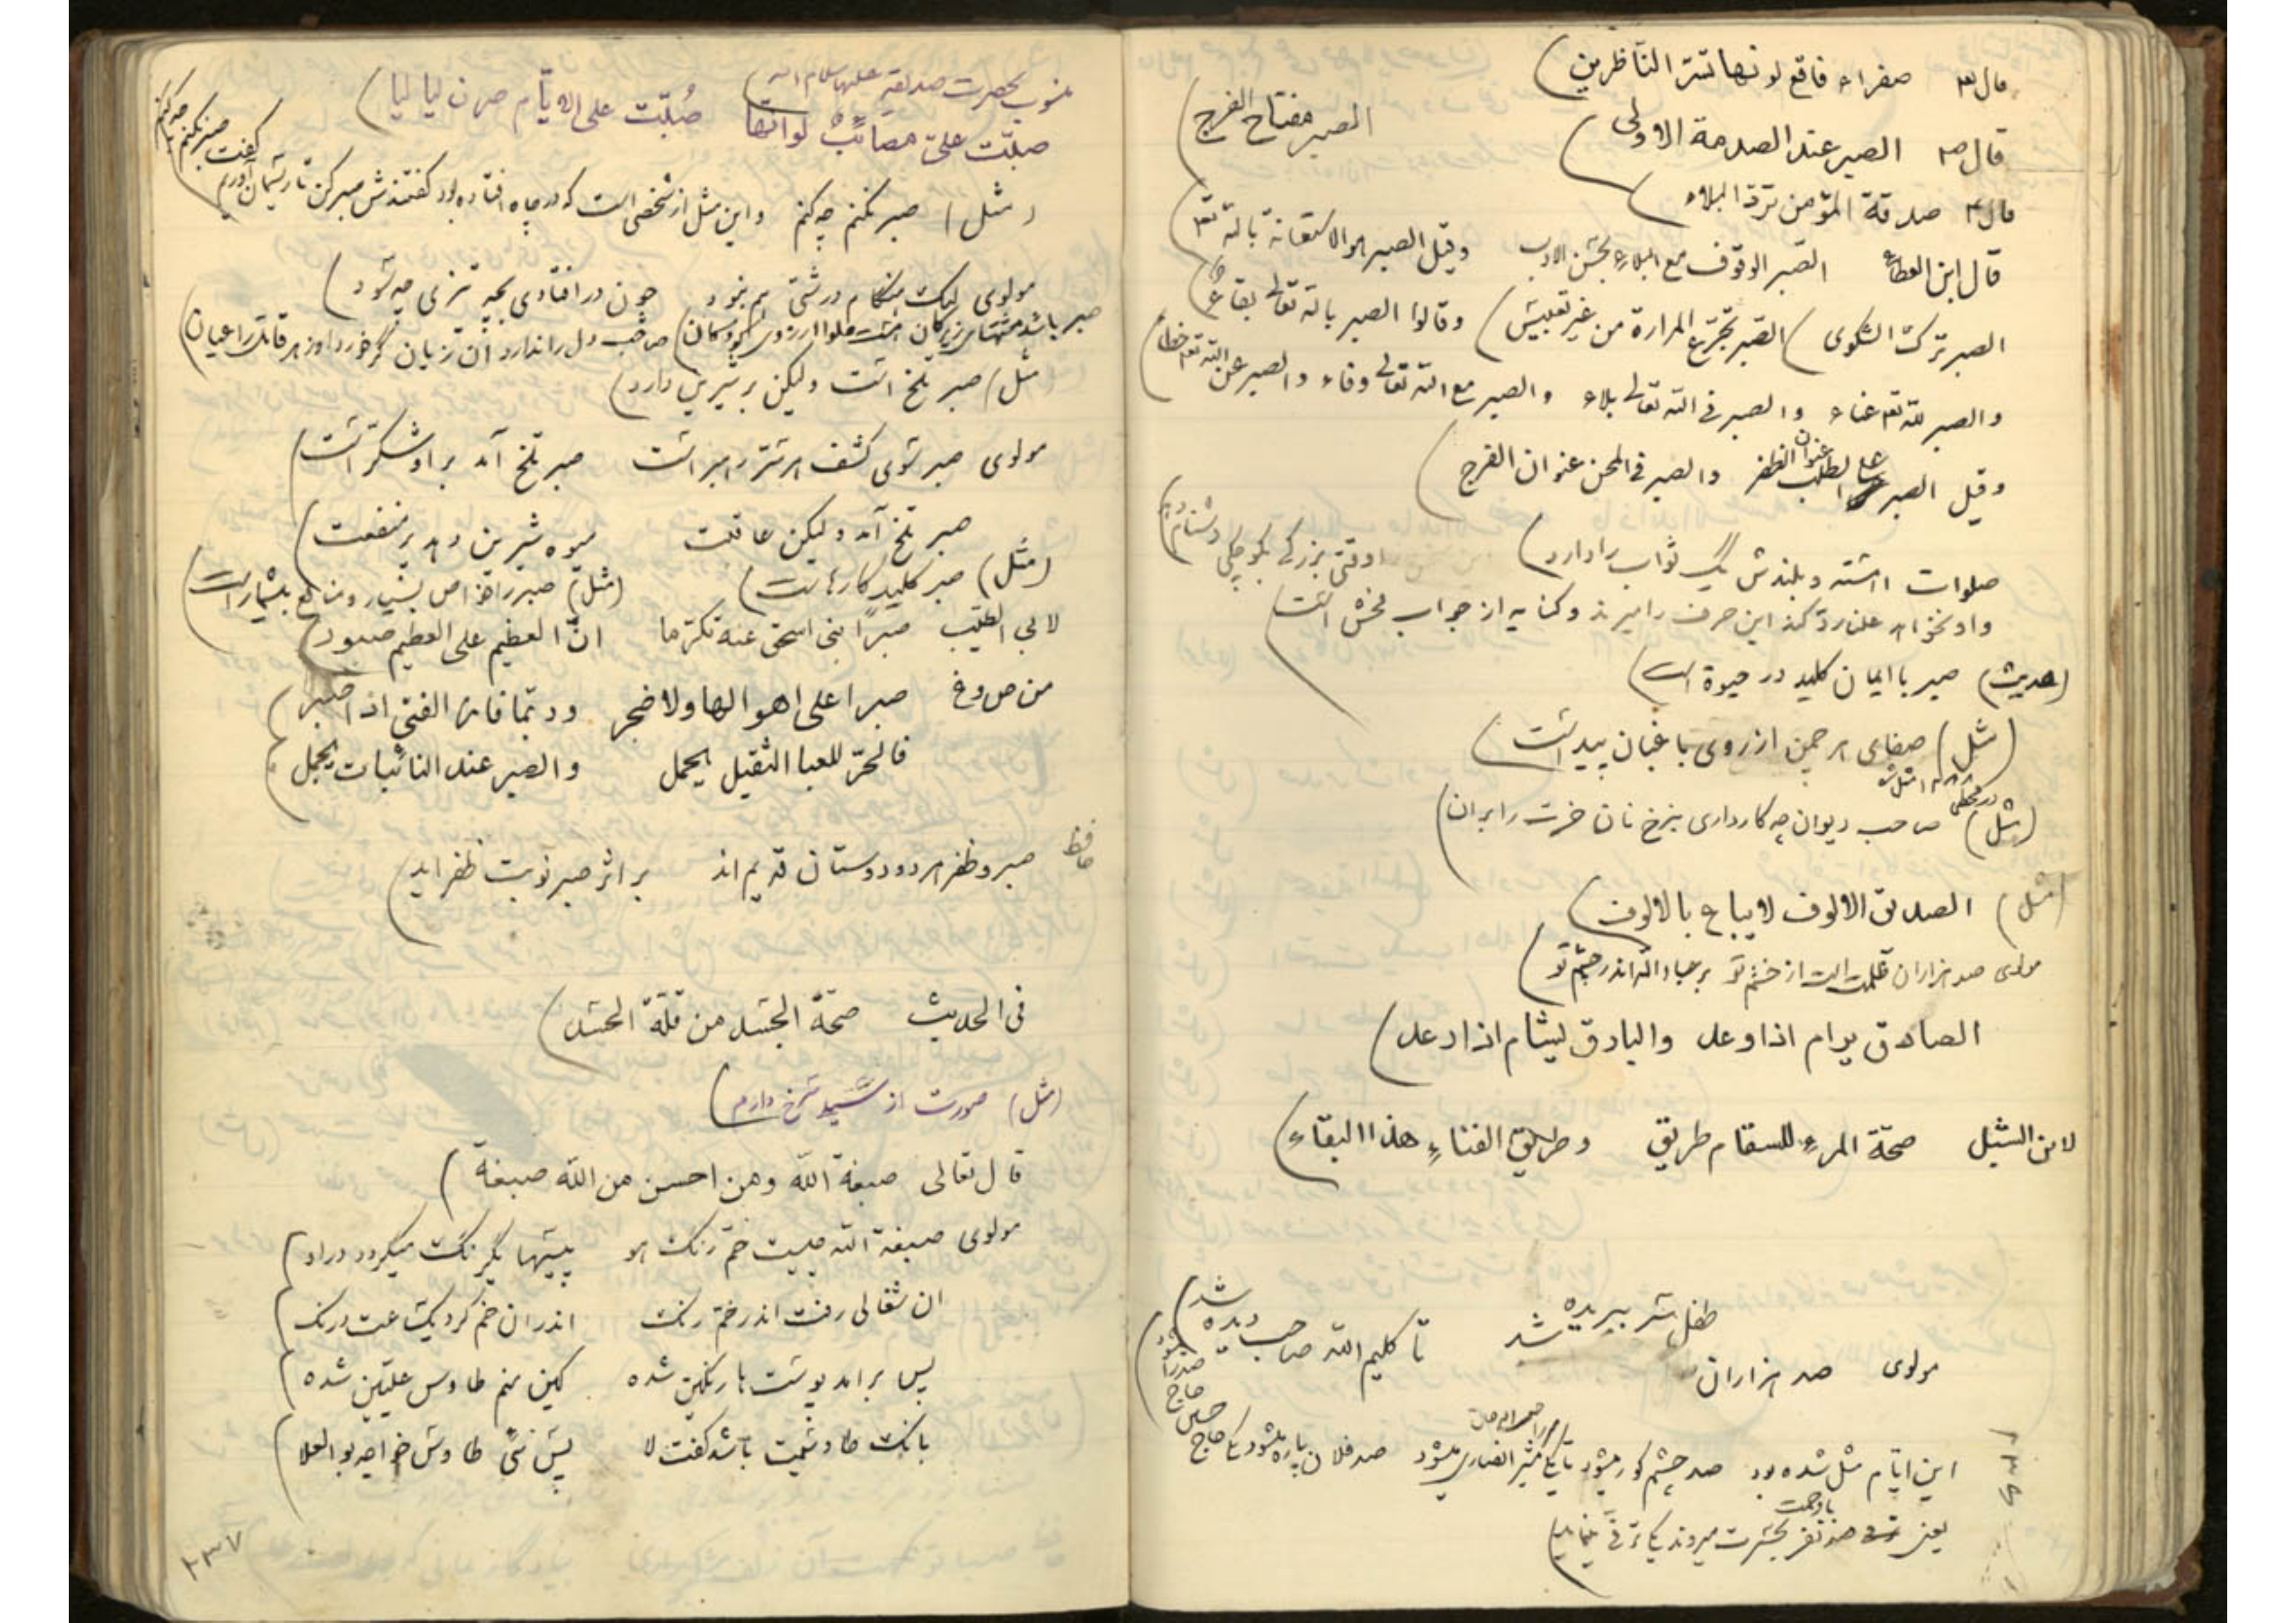 قال تع صفراء فاقع لونها تسرّ النّاظرین
قال ص الصبر عند الصدمة الاولی
الصبر مفتاح الفرج
قال ع صدقة المؤمن تردّ البلاء
قال ابن العطاء الصّبر الوقوف مع البلاء بحسن الادب وقیل الصبر هو الاستعانة بالله تع
الصبر ترک الشکوی الصّبر تجرّع المرارة من غیر تعبیس وقالوا الصبر بالله تعالی بقاء
والصبر لله تع غناء والصبر فی الله تعالی بلاء والصبر مع الله تعالی وفاء والصبر عن الله تع خطاء
وقیل الصبر علی الطلب عنوان الظفر والصبر فی المحن عنوان الفرج
صلوات آهسته و بلندش یک ثواب را دارد وقتی بزرگی بکوچکی دشنام
واو نخواهد علن ردّ کند این حرف را میزند وکنایه از جواب فحش است
(حدیث) صبر با ایمان کلید در حیوة است
(مثل) صفای هر چمن از روی باغبان پیداست
(مثل) صاحب دیوان چه کار داری بنرخ نان خرت را بران
(مثل) الصدیق الالوف لایباع بالالوف
مولوی صد هزاران ظلمت است از خشم تو بر عباد الله اندر چشم تو
الصادق یرام اذا وعد والبارق یشام اذا رعد
لابن الشبل صحّة المرء للسقام طریق وطریق الفناء هذا البقاء
مولوی صد هزاران طفل سر ببریده شد تا کلیم الله صاحب دیده شد
این ایّام مثل شده بود صد چشم کور میشود تا یکی میشود صد فلان پاره میشود تا یک حاج
یعنی صد نفر میروند یکی ترقّی مینماید
منسوب بحضرت صدیقه علیها سلام الله
صبّت علیّ مصائبٌ لو انّها صُبّت علی الایّام صرن لیالیا
(مثل) صبر نکنم چه کنم و این مثل از شخصی است که در چاه افتاده بود گفتندش صبر کن تا ریسمان آورم
گفت صبر نکنم چه کنم
مولوی لیک هنگام درشتی هم نبود چون در افتادی بچه تیزی چه سود
صبر باشد مشتهای زیرکان هست حلوا آرزوی کودکان صاحب دل را ندارد آن زیان گر خورد او زهر قاتل را عیان
(مثل) صبر تلخ است ولیکن بر شیرین دارد
مولوی صبر سوی کشف هر سرّ رهبر است صبر تلخ آمد بر او شکّر است
صبر تلخ آمد ولیکن عاقبت میوه شیرین دهد پر منفعت
(مثل) صبر کلید کارها است (مثل) صبر را خواص بسیار و منافع بیشمار است
لابی الطیّب صبراً بنی اسحق عنه تکرّما انّ العظیم علی العظیم صبور
صبرا علی اهوالها ولا ضجر وربّما فاز الفتی اذا صبر
فالحرّ للعبا الثقیل یحمل والصبر عند النائبات یجمل
حافظ صبر و ظفر هر دو دوستان قدیم اند بر اثر صبر نوبت ظفر اید
فی الحدیث صحّة الجسد من قلّة الحسد
(مثل) صورت از سیلی سرخ دارم
قال تعالی صبغة الله ومن احسن من الله صبغة
مولوی صبغة الله چیست خمّ رنگ هو پیسها یکرنگ میگردد در او
ان شغالی رفت اندر خمّ رنگ اندر ان خم کرد یک ساعت درنگ
پس برامد پوست رنگین شده کین منم طاوس علیّین شده
بانک طاوسیت باشد گفت لا پس نئی طاوس خواجه بوالعلا
۲۳۷